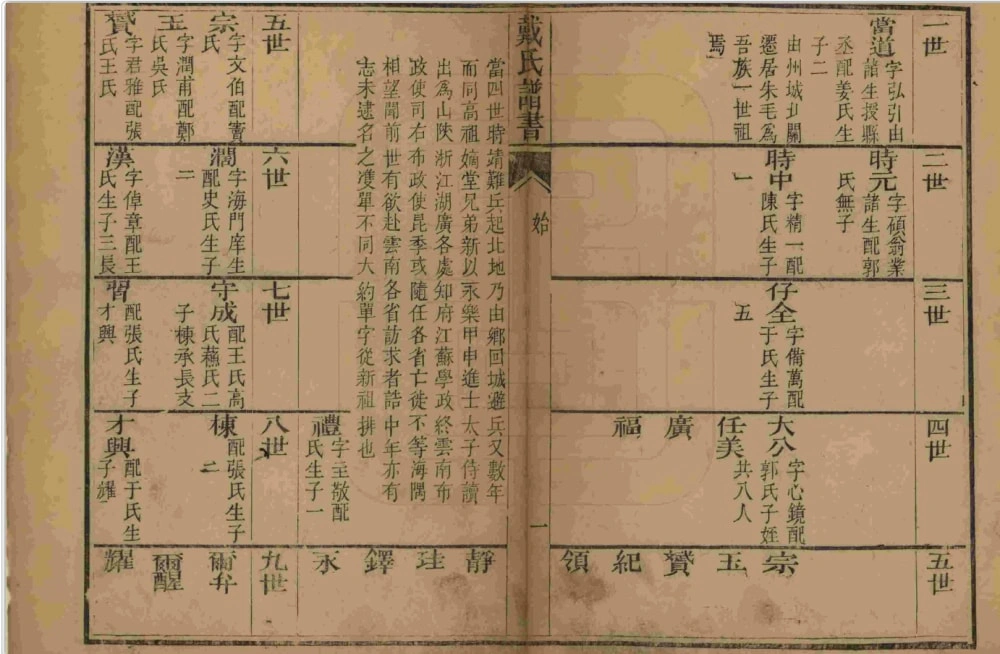 一世
當道
字弘引由
諸生授縣
丞配姜氏生
子二
由州城北關
遷居朱毛為
吾族一世祖
焉
二世
時元
字碩翁業
諸生配郭
氏無子
時中
字精一配
陳氏生子
一
三世
仔全
字備萬配
于氏生子
五
四世
大公
字心鏡配
郭氏子姪
共八人
任美
廣
福
五世
宗
玉
贇
紀
領
戴氏譜書
始
一
當四世時靖難兵起北地乃由鄉回城避兵又數年
而同高祖嫡堂兄弟新以永樂甲申進士太子侍讀
出為山陝浙江湖廣各處知府江蘇學政終雲南布
政使司右布政使昆季或隨任各省亡徙不等海隅
相望聞前世有欲赴雲南各省訪求者誥中年亦有
志未逮名之雙單不同大約單字從新祖排也
禮
字至敬配
氏生子一
靜
珪
鐸
永
五世
宗
字文伯配竇
氏
玉
字潤甫配鄭
氏吳氏
贇
字君雅配張
氏王氏
六世
濶
字海門庠生
配史氏生子
二
漢
字倬章配王
氏生子三長
七世
守成
配王氏高
氏蘓氏二
子棟承長支
習
配張氏生子
才興
八世
棟
配張氏生子
二
才興
配于氏生
子耀
九世
爾弁
爾醒
耀